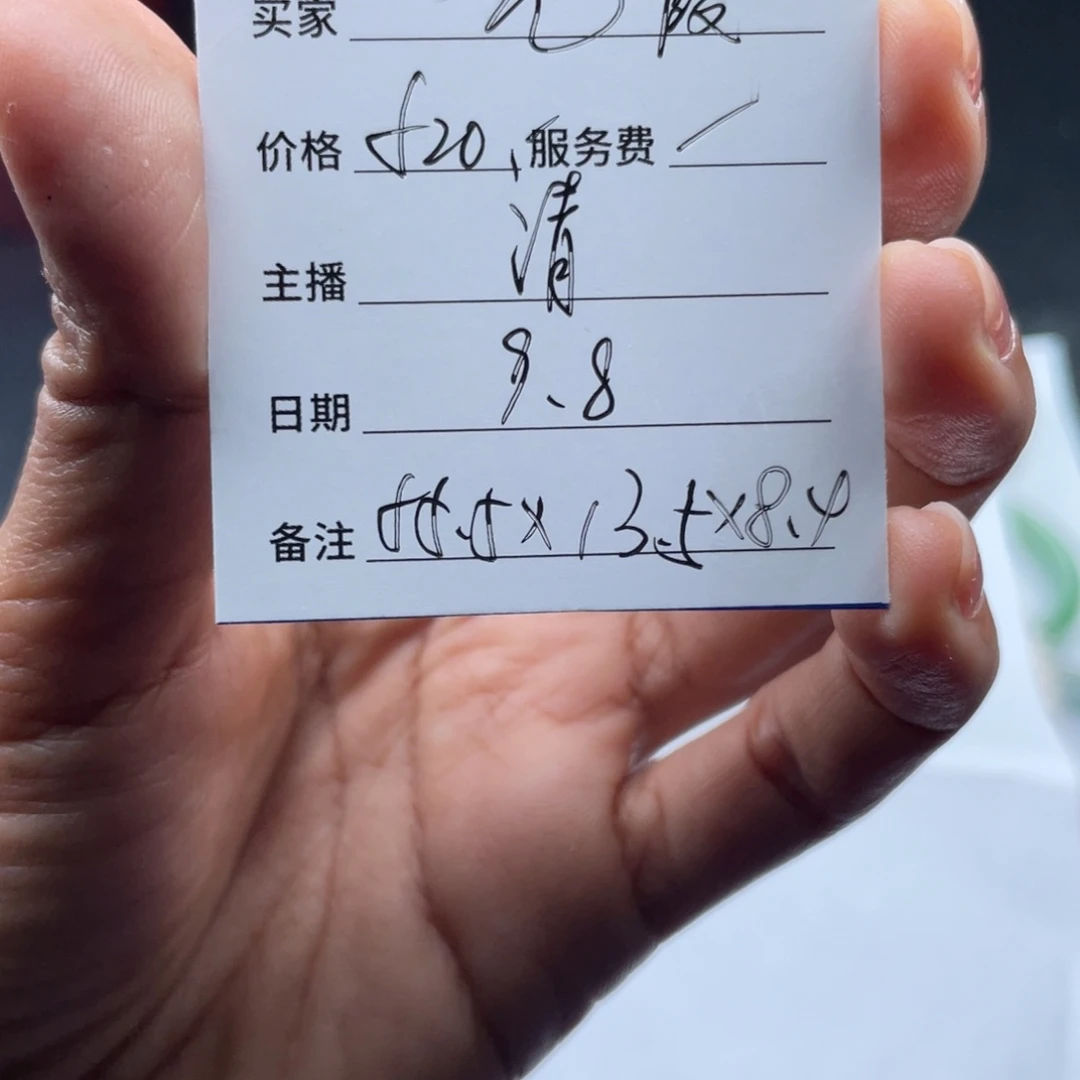 买家
价格 520 服务费 /
主播 清
日期 9.8
备注 55.5×13.5×8.4